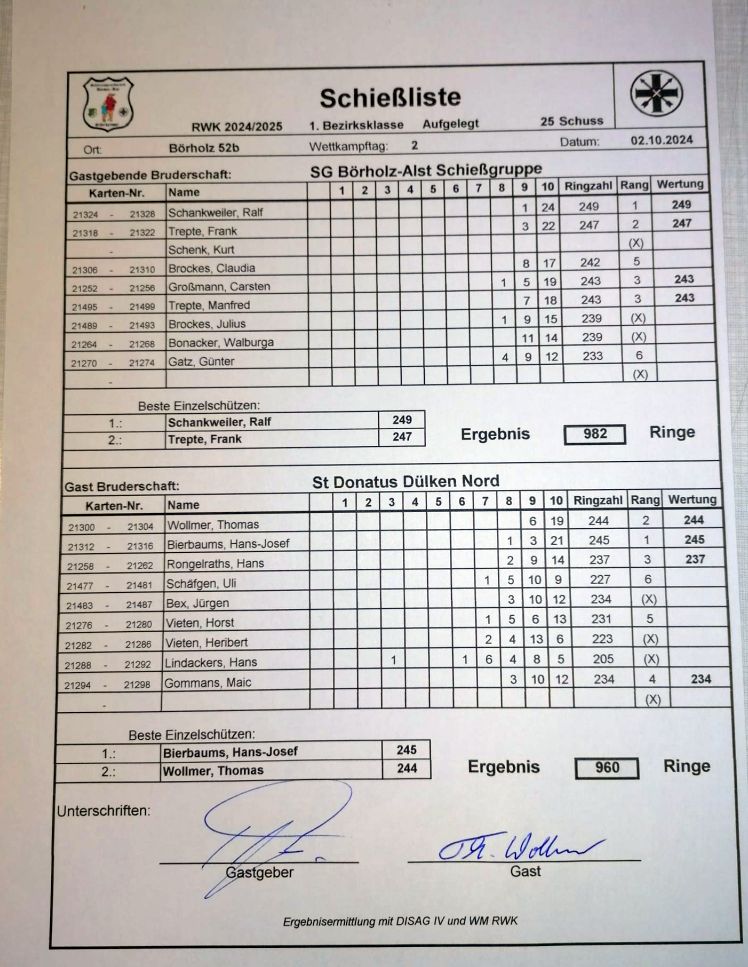 Schießliste
RWK 2024/2025 1. Bezirksklasse Aufgelegt 25 Schuss
Ort: Börholz 52b Wettkampftag: 2 Datum: 02.10.2024
Gastgebende Bruderschaft: SG Börholz-Alst Schießgruppe
Karten-Nr. Name 1 2 3 4 5 6 7 8 9 10 Ringzahl Rang Wertung
21324 - 21328 Schankweiler, Ralf 1 24 249 1 249
21318 - 21322 Trepte, Frank 3 22 247 2 247
- Schenk, Kurt (X)
21306 - 21310 Brockes, Claudia 8 17 242 5
21252 - 21256 Großmann, Carsten 1 5 19 243 3 243
21495 - 21499 Trepte, Manfred 7 18 243 3 243
21489 - 21493 Brockes, Julius 1 9 15 239 (X)
21264 - 21268 Bonacker, Walburga 11 14 239 (X)
21270 - 21274 Gatz, Günter 4 9 12 233 6
- (X)
Beste Einzelschützen:
1.: Schankweiler, Ralf 249
2.: Trepte, Frank 247
Ergebnis 982 Ringe
Gast Bruderschaft: St Donatus Dülken Nord
Karten-Nr. Name 1 2 3 4 5 6 7 8 9 10 Ringzahl Rang Wertung
21300 - 21304 Wollmer, Thomas 6 19 244 2 244
21312 - 21316 Bierbaums, Hans-Josef 1 3 21 245 1 245
21258 - 21262 Rongelraths, Hans 2 9 14 237 3 237
21477 - 21481 Schäfgen, Uli 1 5 10 9 227 6
21483 - 21487 Bex, Jürgen 3 10 12 234 (X)
21276 - 21280 Vieten, Horst 1 5 6 13 231 5
21282 - 21286 Vieten, Heribert 2 4 13 6 223 (X)
21288 - 21292 Lindackers, Hans 1 1 6 4 8 5 205 (X)
21294 - 21298 Gommans, Maic 3 10 12 234 4 234
- (X)
Beste Einzelschützen:
1.: Bierbaums, Hans-Josef 245
2.: Wollmer, Thomas 244
Ergebnis 960 Ringe
Unterschriften:
Th. Wollmer
Gastgeber Gast
Ergebnisermittlung mit DISAG IV und WM RWK